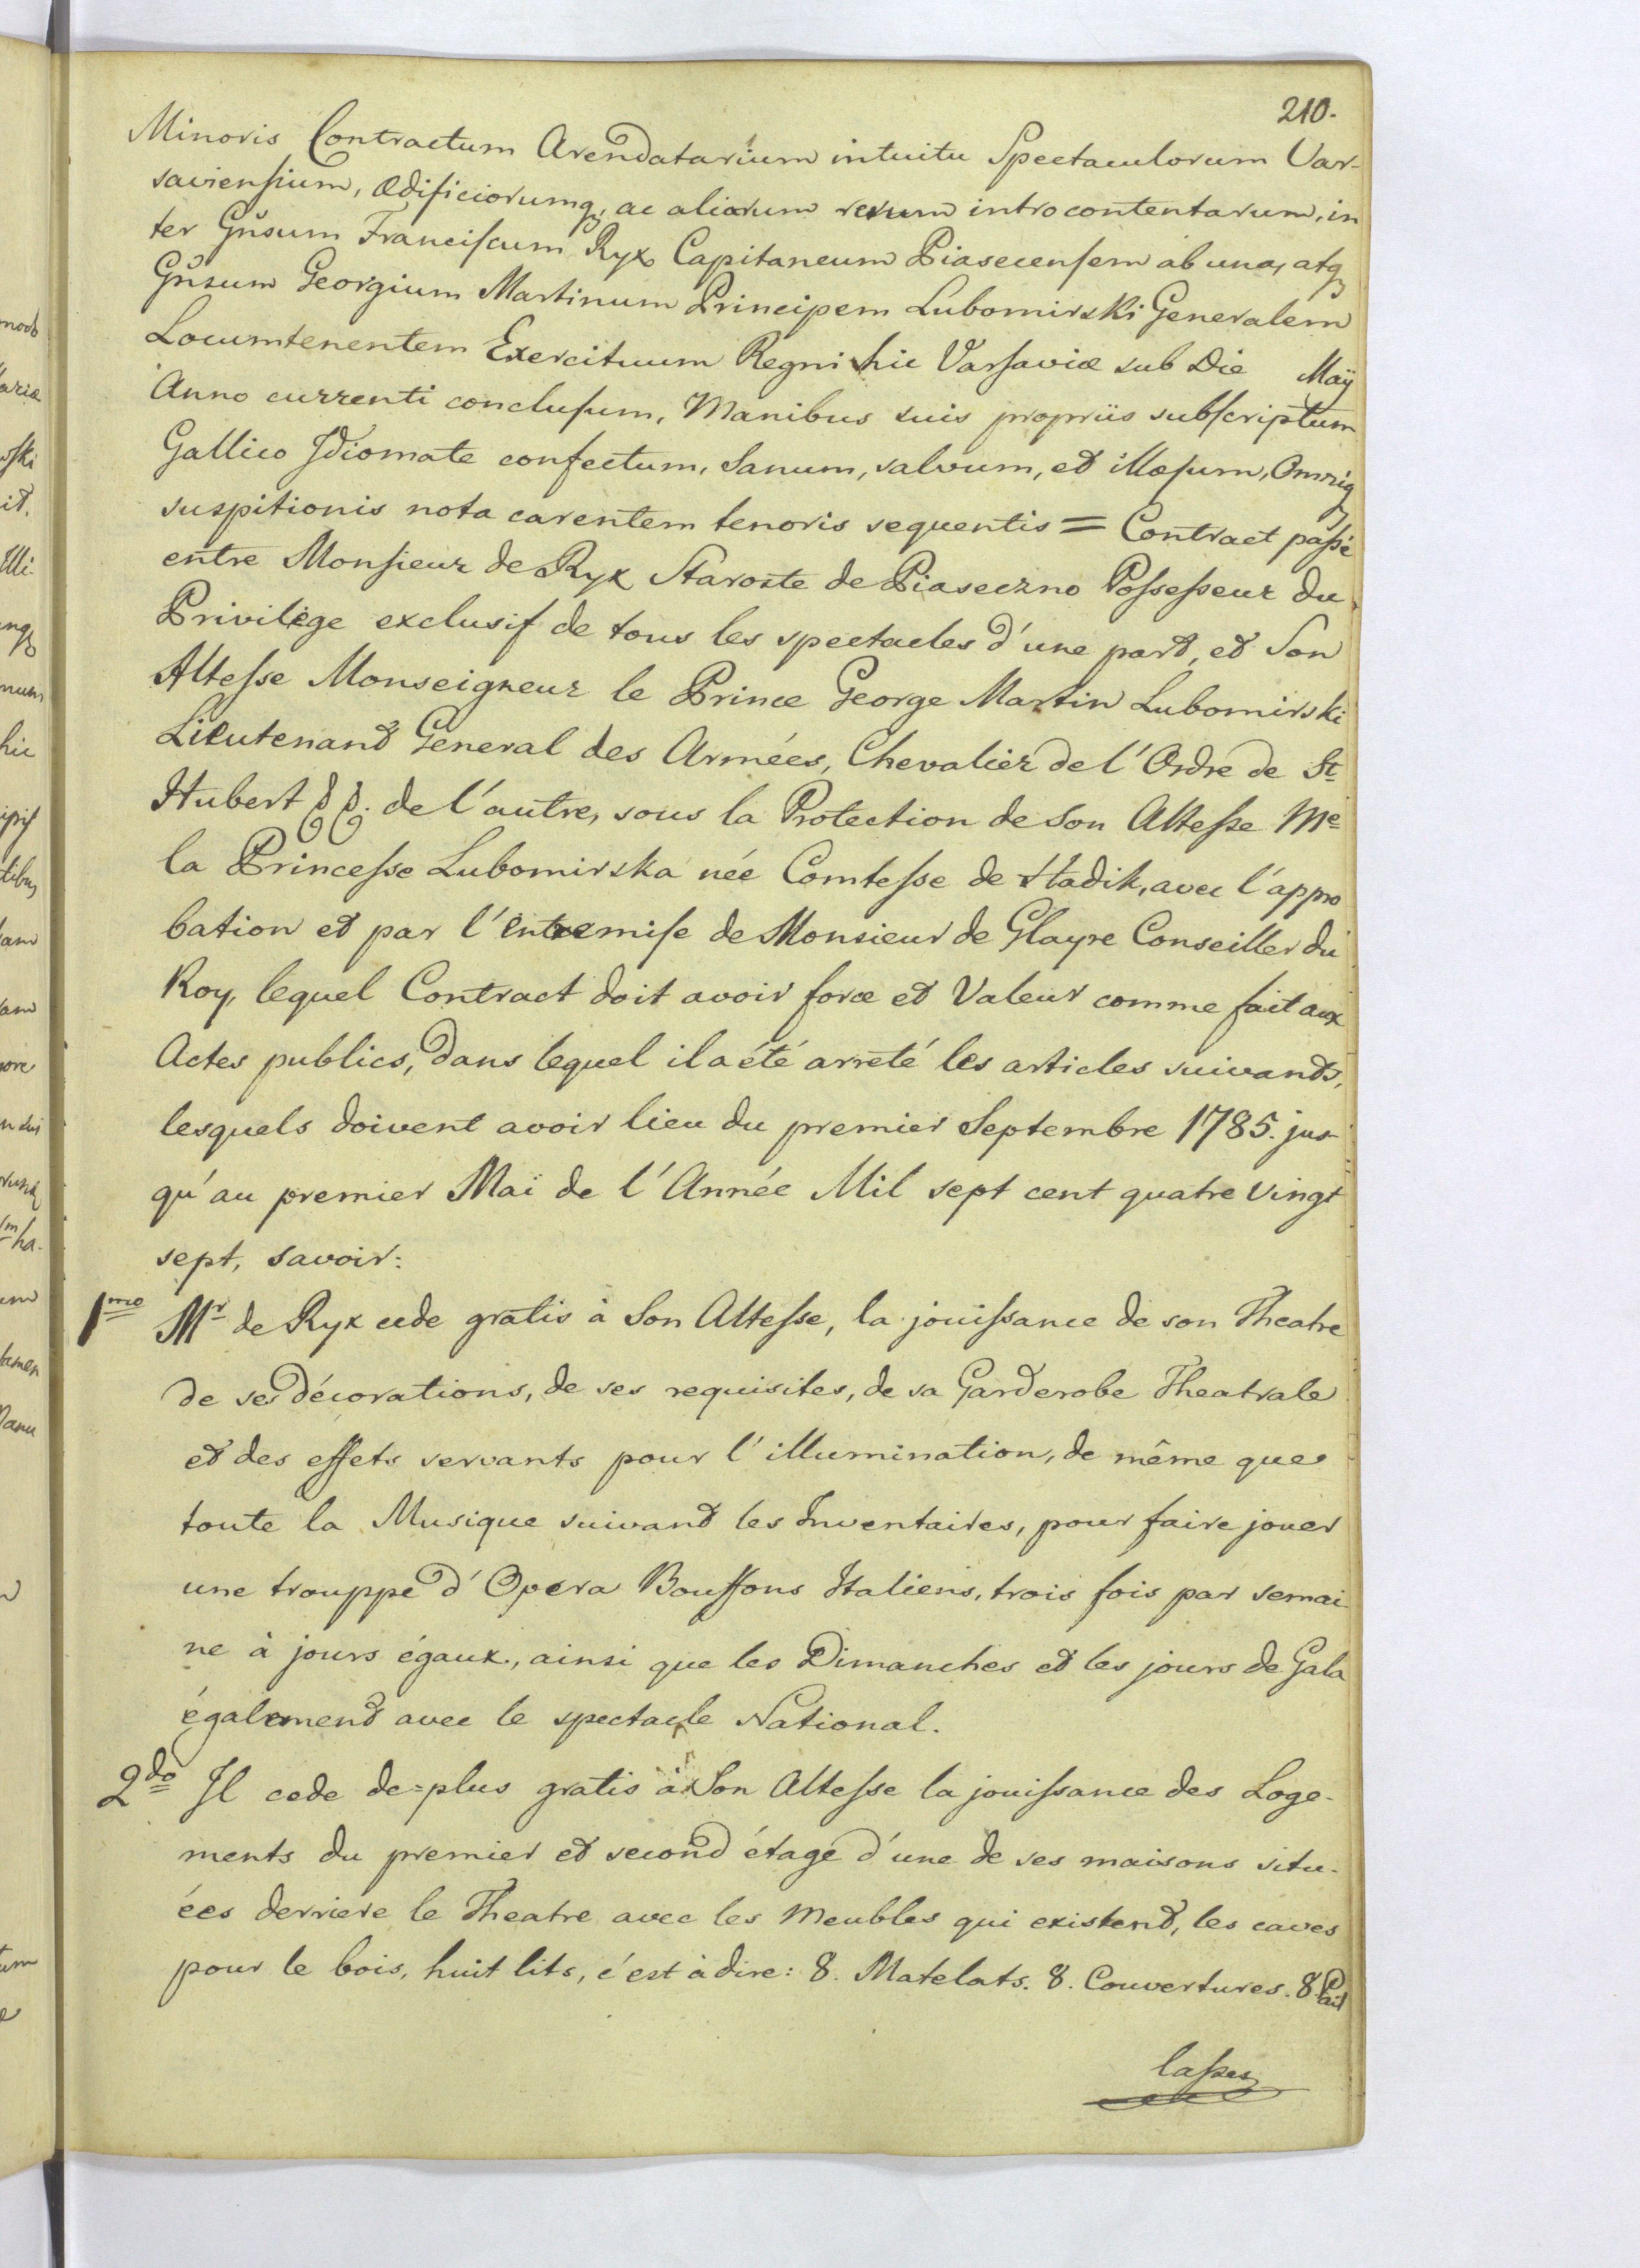 210.
Minoris Contractum Arendatarium intuitu Spectaculorum Var-
saviensium, Ædificiorumq, ac aliarum rerum introcontentarum, in
ter Gnsum Franciscum Ryx Capitaneum Piasecensem ab una, atq
Gnsum Georgium Martinum Principem Lubomirski Generalem
Locumtenentem Exercituum Regni hic Varsaviæ sub Die Maÿ
Anno currenti conclusum, Manibus suis propriis subscriptum
Gallico Idiomate confectum, Sanum, salvum, et illæsum, Omniq
suspitionis nota carentem tenoris sequentis = Contract passé
entre Monsieur de Ryx Staroste de Piaseczno Possesseur du
Privilège exclusif de tous les spectacles d'une part, et Son
Altesse Monseigneur le Prince George Martin Lubomirski
Lieutenant General des Armées, Chevalier de l'Ordre de St
Hubert &&. de l'autre, sous la Protection de Son Altesse Me
la Princesse Lubomirska née Comtesse de Hadik, avec l'appro
bation et par l'entremise de Monsieur de Glayre Conseiller du
Roy, lequel Contract doit avoir force et Valeur comme fait aux
Actes publics, dans lequel il a été arreté les articles suivants,
lesquels doivent avoir lieu du premier Septembre 1785. jus-
qu'au premier Maï de l'Année Mil sept cent quatre vingt
sept, savoir:
1mo Mr de Ryx cede gratis à Son Altesse, la jouissance de son Theatre
de ses décorations, de ses requisites, de sa Garderobe Theatrale
et des effets servants pour l'illumination, de même que
toute la Musique suivant les Inventaires, pour faire jouer
une trouppe d'Opera Bouffons Italiens, trois fois par semai
ne à jours égaux, ainsi que les Dimanches et les jours de Gala
également avec le spectacle National.
2do Il cede de=plus gratis à Son Altesse la jouissance des Loge-
ments du premier et second étage d'une de ses maisons situ-
ées derriere le Theatre avec les Meubles qui existent, les caves
pour le bois, huit lits, c'est à dire: 8. Matelats. 8. Couvertures. 8. Pail
lasses